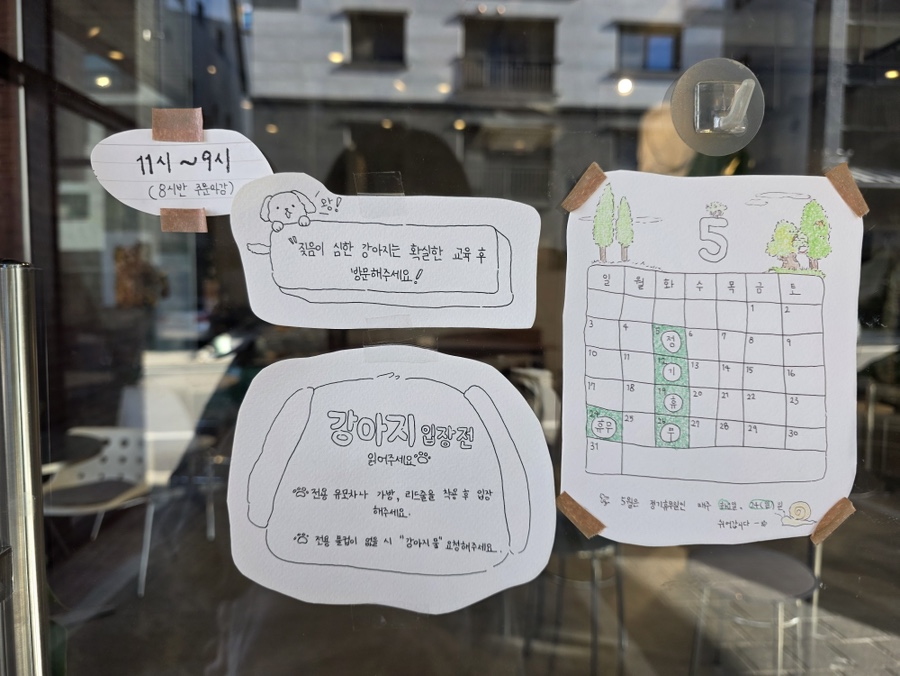 11시 ~ 9시
(8시반 주문마감)
왕!
"짖음이 심한 강아지는 확실한 교육 후
방문해주세요!
강아지 입장 전
읽어주세요
전용 유모차나 가방, 리드줄을 착용 후 입장
해주세요.
전용 물컵이 없을 시 "강아지 물" 요청해주세요..
5
일 월 화 수 목 금 토
1 2
3 4 5 정 6 7 8 9
10 11 12 기 13 14 15 16
17 18 19 휴 20 21 22 23
24 휴무 25 26 무 27 28 29 30
31
5월은 정기휴무일인 매주 화요일, 24(일)은
쉬어갑니다